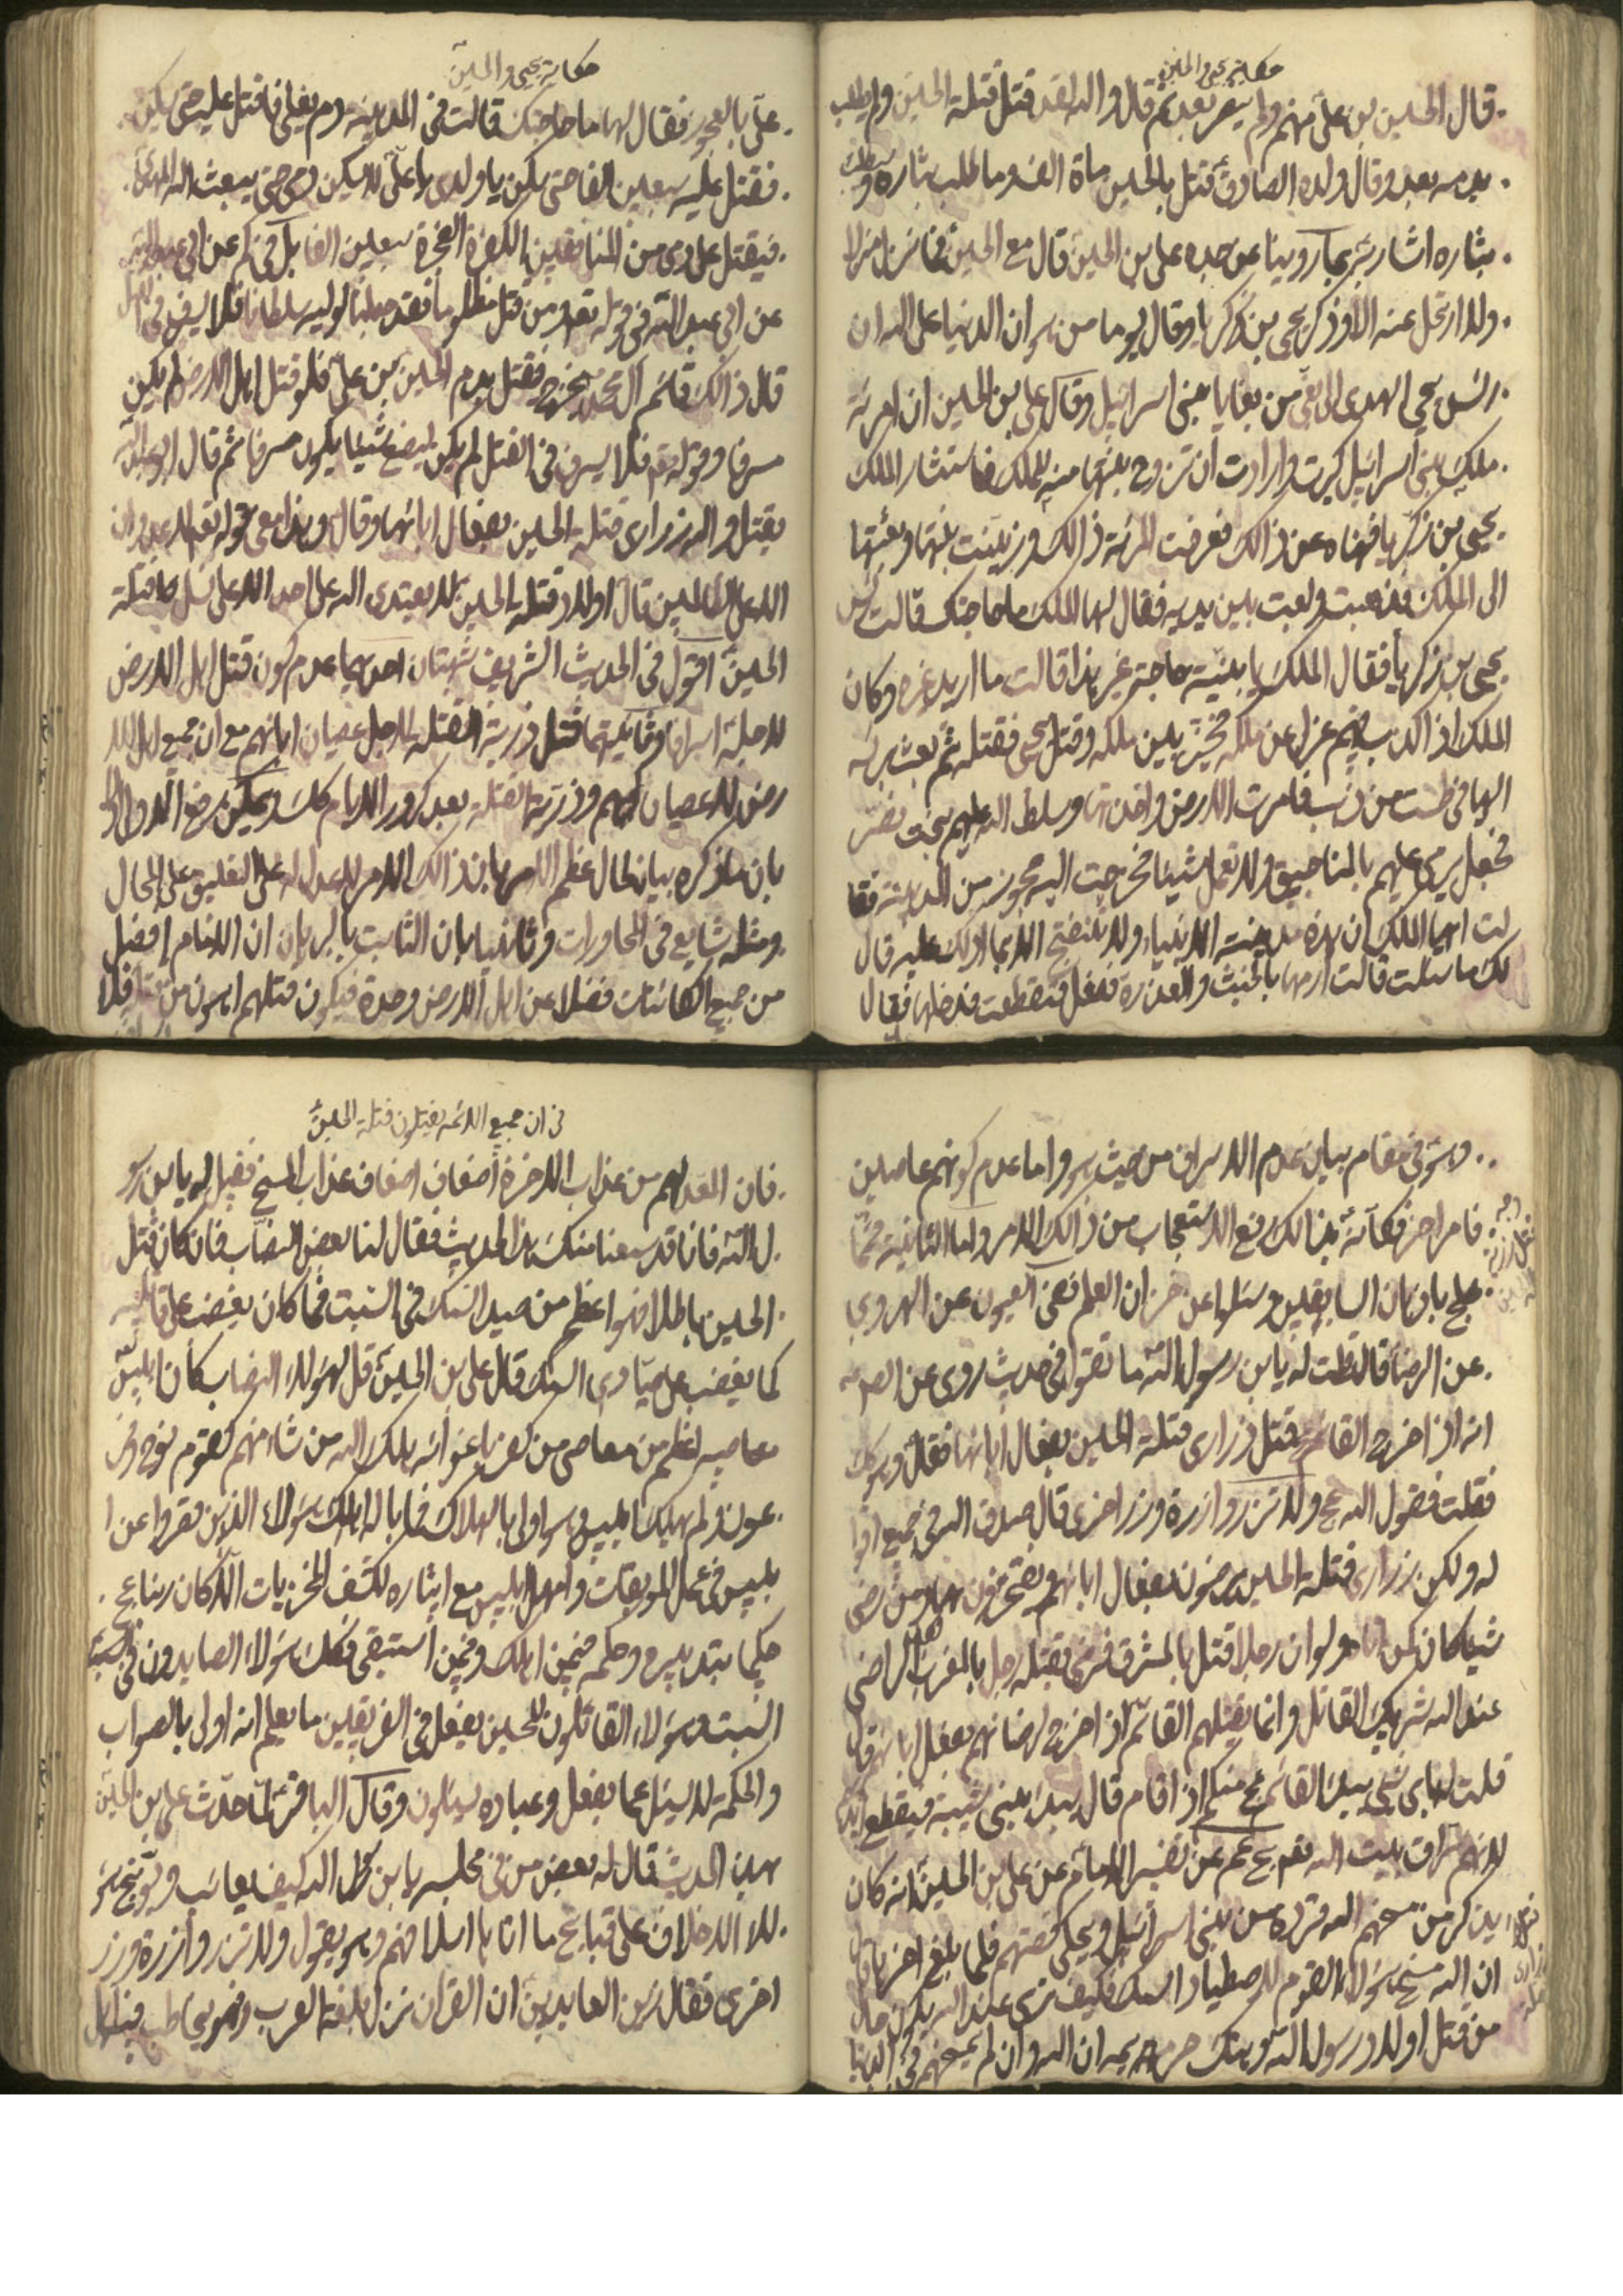 حكاية يحيى والحسين
قال الحسين بن علي منهم ولم يسفر بعد ثم قال والله لقد قتل قتلة الحسين ولم يطلب
بدمه بعد وقال ولده الصادق قتل بالحسين مأة الف وما طلب بثاره وسيطلب
بثاره اشار بحار روينا عن جده علي بن الحسين قال مع الحسين فما نزل منزلا
ولا ارتحل عنه الا وذكر يحيى بن زكريا وقال يوما من هوان الدنيا على الله ان
راس يحيى اهدى الى بغي من بغايا بني اسرائيل وقال علي بن الحسين ان امرئة
ملك بني اسرائيل كبرت وارادت ان تزوج بنتها منه للملك فاستشار الملك
يحيى بن زكريا فنهاه عن ذالك فعرفت المرئة ذالك وزينت بنتها وبعثتها
الى الملك فذهبت ولعبت بين يديه فقال لها الملك ما حاجتك قالت راس
يحيى بن زكريا فقال الملك يا بنية حاجة غير هذا قالت ما اريد غيره وكان
الملك اذا كذب فيهم عزل عن ملكه فخير بين ملكه وقتل يحيى فقتله ثم بعث براسه
اليها في طشت من ذهب فامرت الارض واخذتها وسلط الله عليهم بخت نصر
فجعل يرمي عليهم بالمناجيق ولا تعمل شيئا فخرجت اليه عجوز من المدينة فقا
لت ايها الملك ان هذه مدينة الانبياء ولا تنفتح الا بما ادلك عليه قال
لك ما سئلت قالت ارمها بالخبث والعذرة ففعل فتقطعت فدخلها فقال
حكاية يحيى والحسين
علي بالعجوز فقال لها ما حاجتك قالت في المدينة دم يغلي فاقتل عليه حتى يسكن
فقتل عليه سبعين الفا حتى سكن يا ولدي يا علي لا يسكن دمي حتى يبعث الله المهدي
فيقتل على دمي من المنافقين الكفرة الفجرة سبعين الفا عن ابي عبد الله
عن ابي عبد الله في قوله تعالى ومن قتل مظلوما فقد جعلنا لوليه سلطانا فلا يسرف في القتل
قال ذالك قائم ال محمد يخرج فيقتل بدم الحسين بن علي فلو قتل اهل الارض لم يكن
مسرفا وقوله فلا يسرف في القتل لم يكن ليصنع شيئا يكون مسرفا ثم قال ابو عبد الله
يقتل والله ذراري قتلة الحسين بفعال ابائها وقال وهذا معنى قوله تعالى لا عدوان
الا على الظالمين قال اولاد قتلة الحسين لا يعتدي الله على احد الا على نسل قتلة
الحسين اقول في الحديث الشريف شبهتان احديهما عدم كون قتل اهل الارض
لاجله اسرافا وثانيتهما قتل ذرية القتلة لاجل عصيان ابائهم مع ان جميع اهل الا
رض بعد كرور الايام كلك ويمكن دفع الاولى
بان ما ذكره بيانا لحال عظم الامر على التعليق على المحال
ومثله شايع في المحاورات وثانيا بان الثابت بالبرهان ان الامام افضل
من جميع الكائنات فضلا عن اهل الارض وحده فيكون قتلهم اهون من قتله فلا
وهو في مقام بيان عدم الاسراف من حيث هو واما عدم كونهم عاصين
فامر اخر فكأنه بذالك رفع الاستعجاب من ذالك الامر واما الثانية
بان السابقين وسئلوا عن خزان العلم ففي العيون عن الهروي
عن الرضا قال قلت له يا بن رسول الله ما تقول في حديث روي عن الص
انه اذا خرج القائم قتل ذراري قتلة الحسين بفعال ابائها فقال هو كك
فقلت فقول الله عج ولا تزر وازرة وزر اخرى قال صدق الله في جميع اقوا
له ولكن ذراري قتلة الحسين يرضون بفعال ابائهم ويفتخرون بها ومن رضي
شيئا كان كمن اتاه ولو ان رجلا قتل بالمشرق فرضي بقتله رجل بالمغرب لكان الراضي
عند الله شريك القاتل وانما يقتلهم القائم اذا خرج لرضائهم بفعل ابائهم قال
قلت له باي شيء يبدء القائم عج منكم اذا قام قال يبدء ببني شيبة فيقطع ايديهم
لانهم سراق بيت الله عن تفسير الامام عن علي بن الحسين انه كان
يذكر من مسخهم الله قردة من بني اسرائيل ويحكي قصتهم فلما بلغ اخرها قال
ان الله مسخ هؤلاء القوم لاصطياد السمك فكيف ترى عند الله يكون حال
من قتل اولاد رسول الله وهتك حريمه ان الله وان لم يمسخهم في الدنيا
في ان جميع الائمه يقتلون قتلة الحسين
فان المعد لهم من عذاب الاخرة اضعاف اضعاف عذاب المسخ فقيل له يا بن رسو
ل الله فانا قد سمعنا منك هذا الحديث فقال لنا بعض النصاب فان كان قتل
الحسين باطلا فهو اعظم من صيد السمك في السبت فما كان يغضب على قاتليه
كما يغضب على صيادي السمك قال علي بن الحسين قل لهؤلاء النصاب كان ابليس
معاصيه اعظم من معاصي من كفر باغوائه فاهلك الله من شاء منهم كقوم نوح وفر
عون ولم يهلك ابليس وهو اولى بالهلاك فما باله اهلك هؤلاء الذين قصروا عن ا
بليس في عمل الموبقات وامهل ابليس مع ايثاره لكشف المخزيات الا كان ربنا عج
حكيما بتدبيره وحكمه فيمن اهلك وفيمن استبقى فكك هؤلاء الصايدون في السبت
وهؤلاء القاتلون للحسين يفعل في الفريقين ما يعلم انه اولى بالصواب
والحكمة لا يسئل عما يفعل وعباده يسئلون وقال الباقر لما حدث علي بن الحسين
بهذا الحديث قال له بعض من في مجلسه يا بن رسول الله كيف يعاتب ويوبخ هؤ
لاء الاخلاف على قبايح ما اتاها اسلافهم وهو يقول ولا تزر وازرة وزر
اخرى فقال زين العابدين ان القران نزل بلغة العرب فهو يخاطب فيه اهل